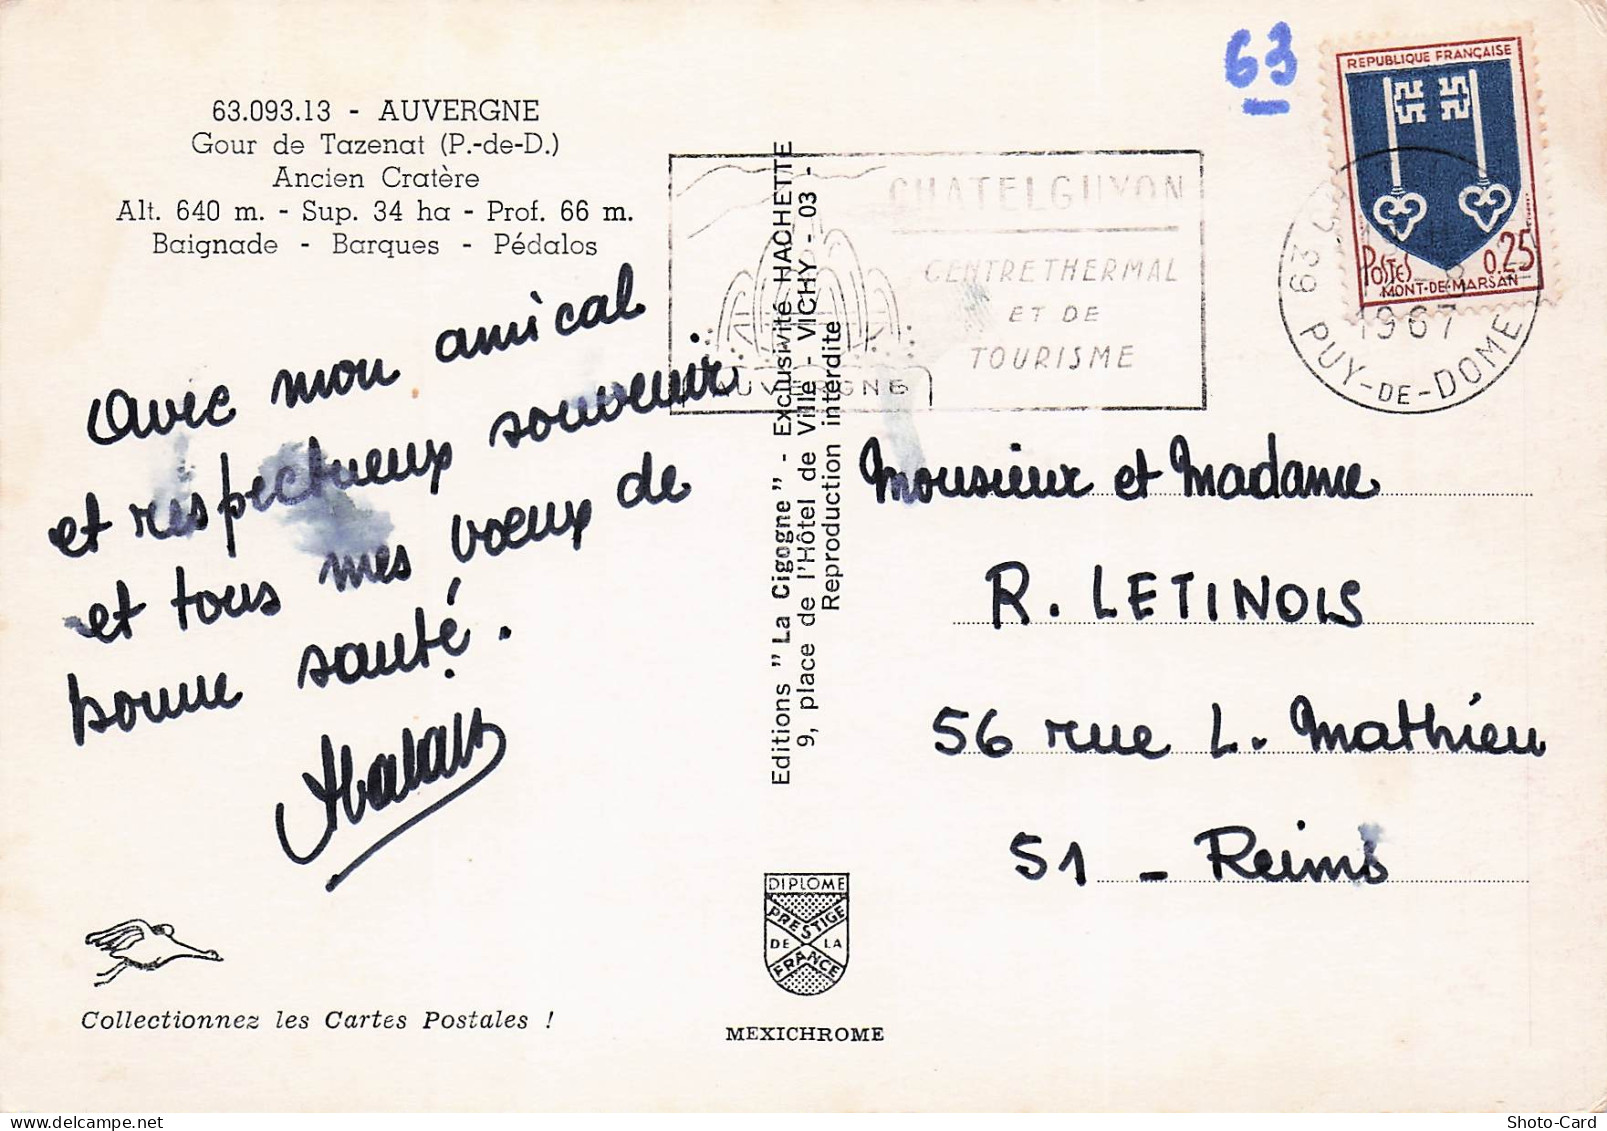 63.093.13 - AUVERGNE
Gour de Tazenat (P.-de-D.)
Ancien Cratère
Alt. 640 m. - Sup. 34 ha - Prof. 66 m.
Baignade - Barques - Pédalos
Avec mon amical
et respectueux souvenir
et tous mes vœux de
bonne santé.
Collectionnez les Cartes Postales !
Editions "La Cigogne" - Exclusivité HACHETTE
9, place de l'Hôtel de Ville - VICHY - 03 -
Reproduction interdite
DIPLOME
PRESTIGE
DE LA
FRANCE
MEXICHROME
CHATELGUYON
CENTRE THERMAL
ET DE
TOURISME
AUVERGNE
63
REPUBLIQUE FRANÇAISE
POSTES 0,25
MONT-DE-MARSAN
63
1967
PUY-DE-DOME
Monsieur et Madame
R. LETINOIS
56 rue L. Mathieu
51 - Reims
Shoto-Card